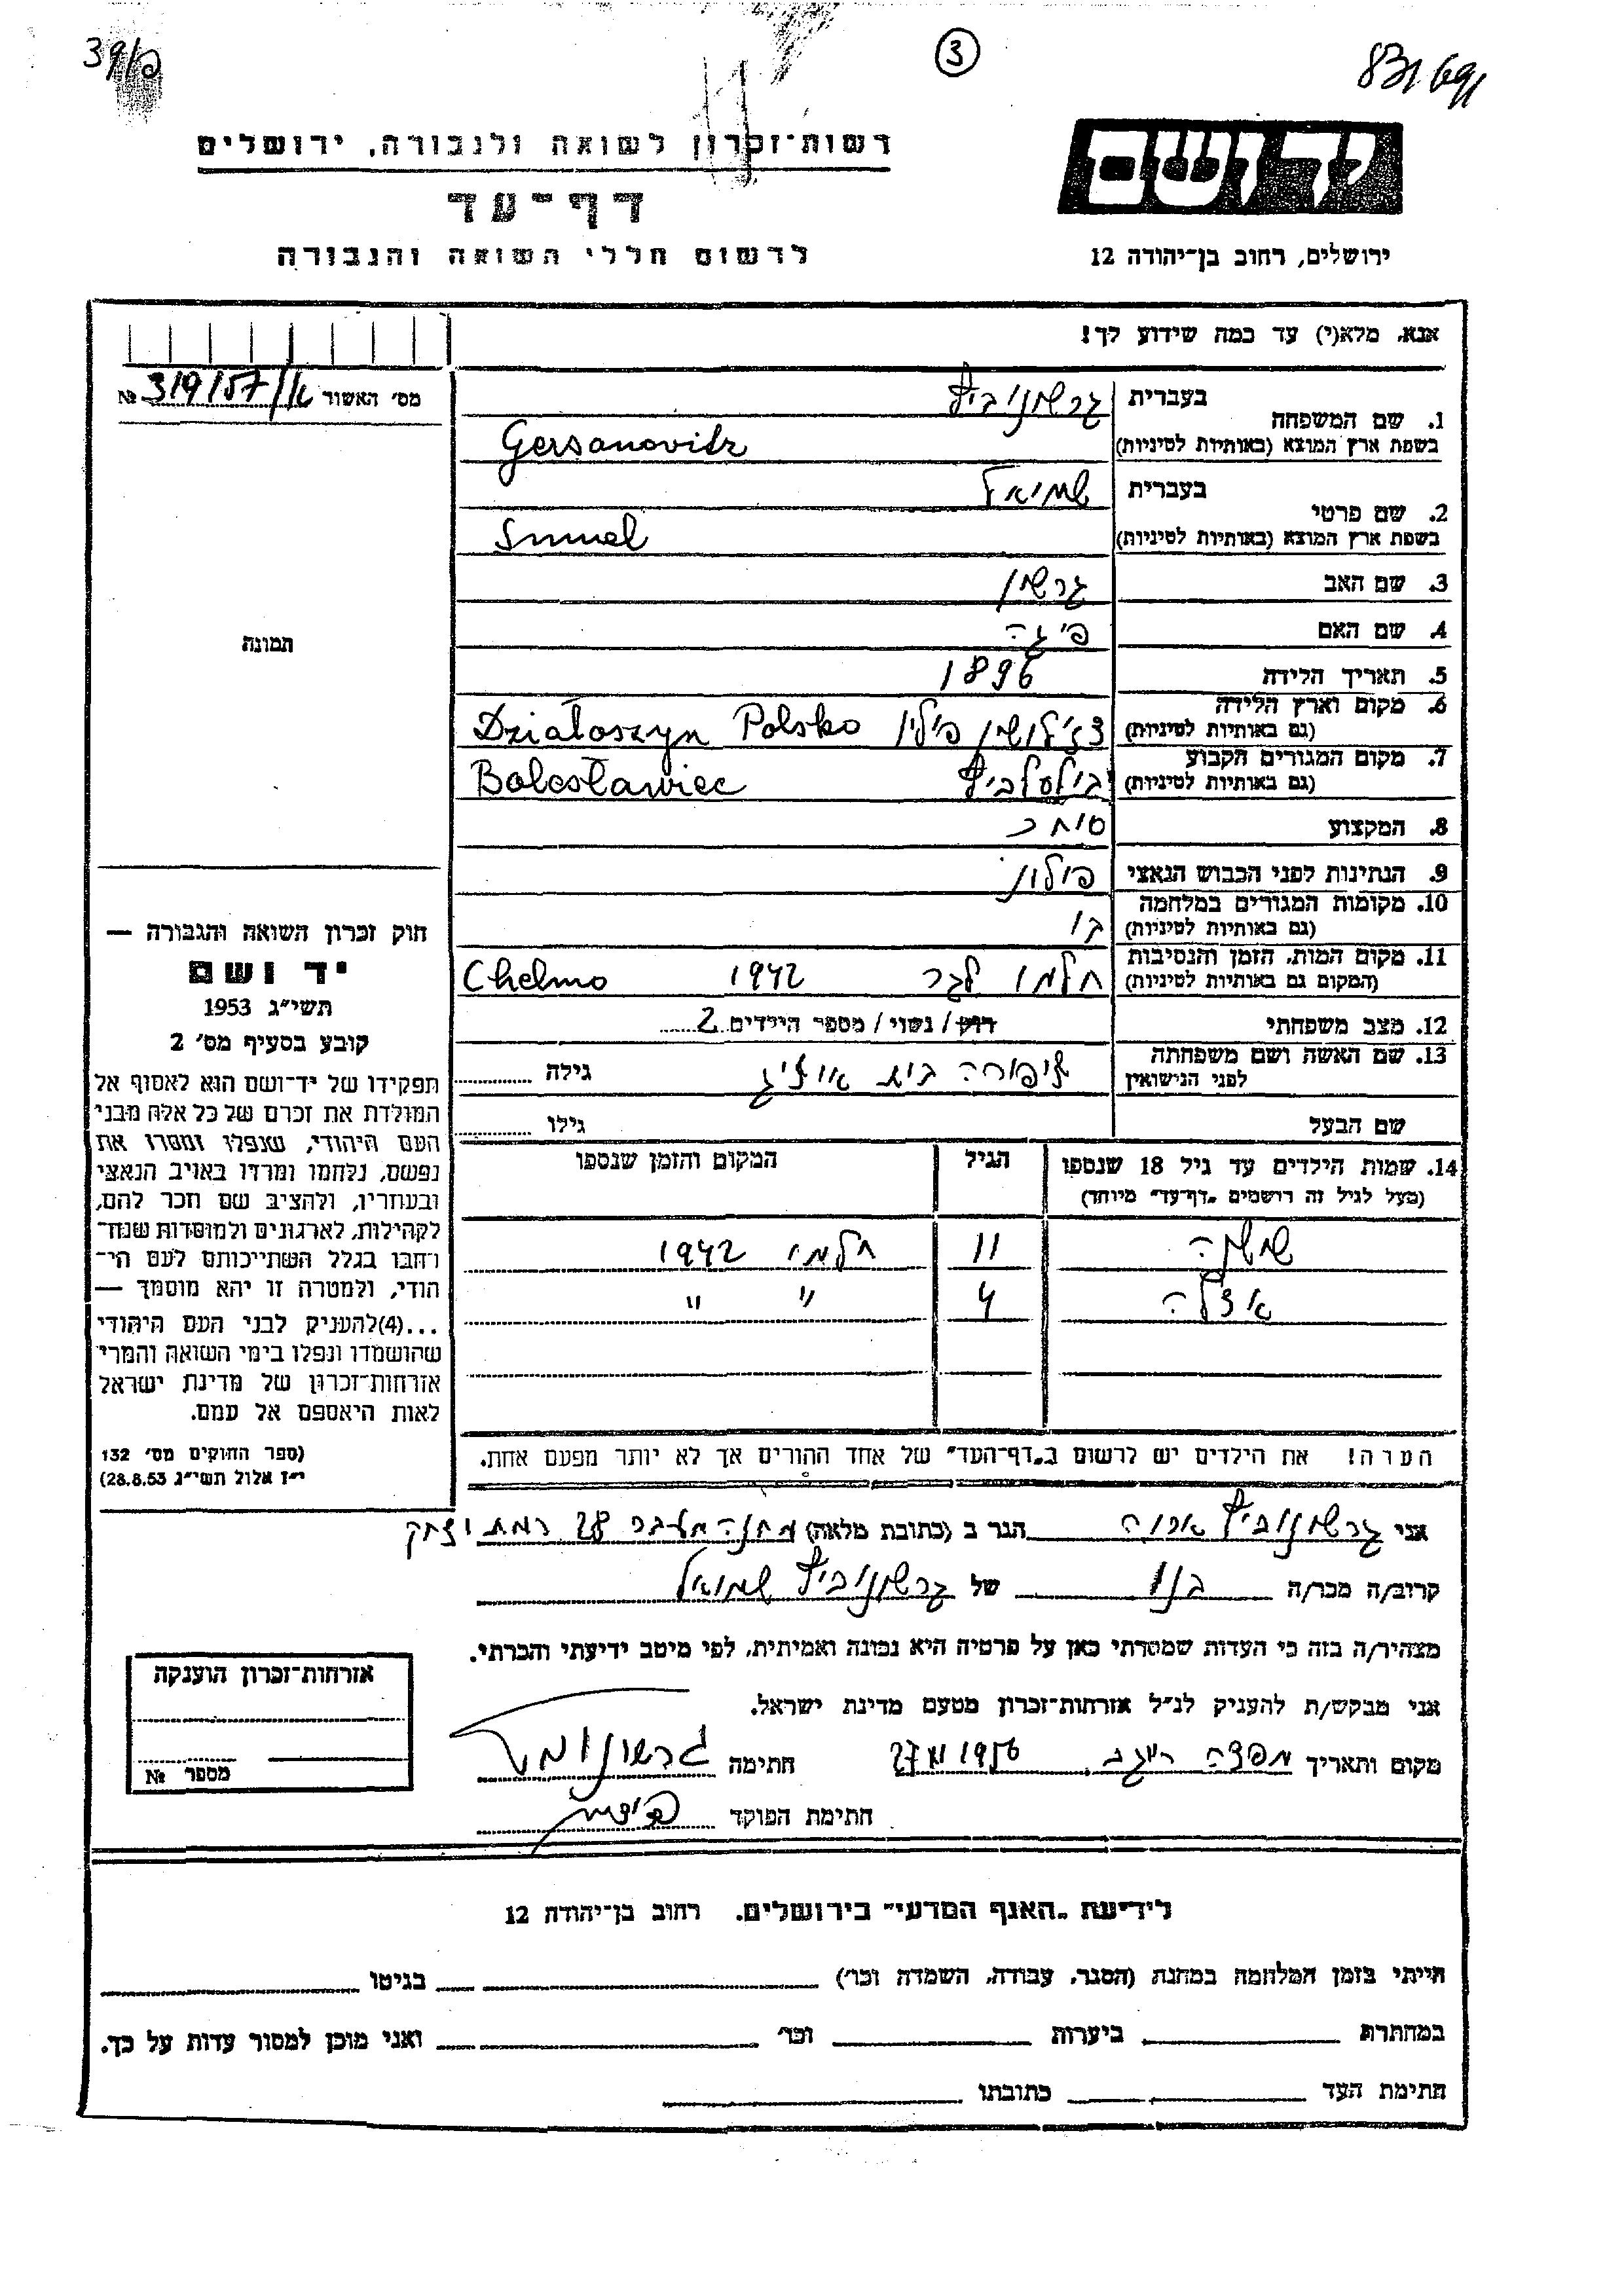 ③
יד ושם
ירושלים, רחוב בן־יהודה 12
רשות־זכרון לשואה ולגבורה, ירושלים
דף־עד
לרשום חללי השואה והגבורה
אנא, מלא(י) עד כמה שידוע לך!
מס' האשור № 319/57/א
1. שם המשפחה בעברית גרשונוביץ
בשפת ארץ המוצא (באותיות לטיניות) Gersanovitz
2. שם פרטי בעברית שמואל
בשפת ארץ המוצא (באותיות לטיניות) Smuel
3. שם האב גרשון
4. שם האם פיגה
5. תאריך הלידה 1896
6. מקום וארץ הלידה (גם באותיות לטיניות) פולין Działoszyn Polska
7. מקום המגורים הקבוע (גם באותיות לטיניות) Bolesławiec
8. המקצוע סוחר
9. הנתינות לפני הכבוש הנאצי פולון
10. מקומות המגורים במלחמה (גם באותיות לטיניות)
11. מקום המות, הזמן והנסיבות (המקום גם באותיות לטיניות) חלמו לגר 1942 Chelmo
12. מצב משפחתי רווק / נשוי / מספר הילדים 2
13. שם האשה ושם משפחתה לפני הנישואין ציפורה בית גילה
שם הבעל גילו
14. שמות הילדים עד גיל 18 שנספו הגיל המקום והזמן שנספו
(מעל לגיל זה רושמים „דף־עד" מיוחד)
11 חלמו 1942
4 " "
הערה! את הילדים יש לרשום ב„דף־העד" של אחד ההורים אך לא יותר מפעם אחת.
תמונה
חוק זכרון השואה והגבורה —
יד ושם
תשי"ג 1953
קובע בסעיף מס' 2
תפקידו של יד־ושם הוא לאסוף אל
המולדת את זכרם של כל אלה מבני
העם היהודי, שנפלו ומסרו את
נפשם, נלחמו ומרדו באויב הנאצי
ובעוזריו, ולהציב שם וזכר להם,
לקהילות, לארגונים ולמוסדות שנח־
רבו בגלל השתייכותם לעם הי־
הודי, ולמטרה זו יהא מוסמך —
...(4) להעניק לבני העם היהודי
שהושמדו ונפלו בימי השואה והמרי
אזרחות־זכרון של מדינת ישראל
לאות היאספם אל עמם.
(ספר החוקים מס' 132
י"ז אלול תשי"ג 28.8.53)
אני גרשונוביץ הגר ב (כתובת מלאה) 28 רמת יצחק
קרוב/ה מכר/ה בנו של גרשונוביץ שמואל
מצהיר/ה בזה כי העדות שמסרתי כאן על פרטיה היא נכונה ואמיתית, לפי מיטב ידיעתי והכרתי.
אני מבקש/ת להעניק לנ"ל אזרחות־זכרון מטעם מדינת ישראל.
מקום ותאריך 1956 חתימה
חתימת הפוקד
אזרחות־זכרון הוענקה
מספר №
לידיעת „האגף המדעי" בירושלים, רחוב בן־יהודה 12
הייתי בזמן המלחמה במחנה (הסגר, עבודה, השמדה וכו') בגיטו
במחתרת ביערות וכו' ואני מוכן למסור עדות על כך.
חתימת העד כתובתו